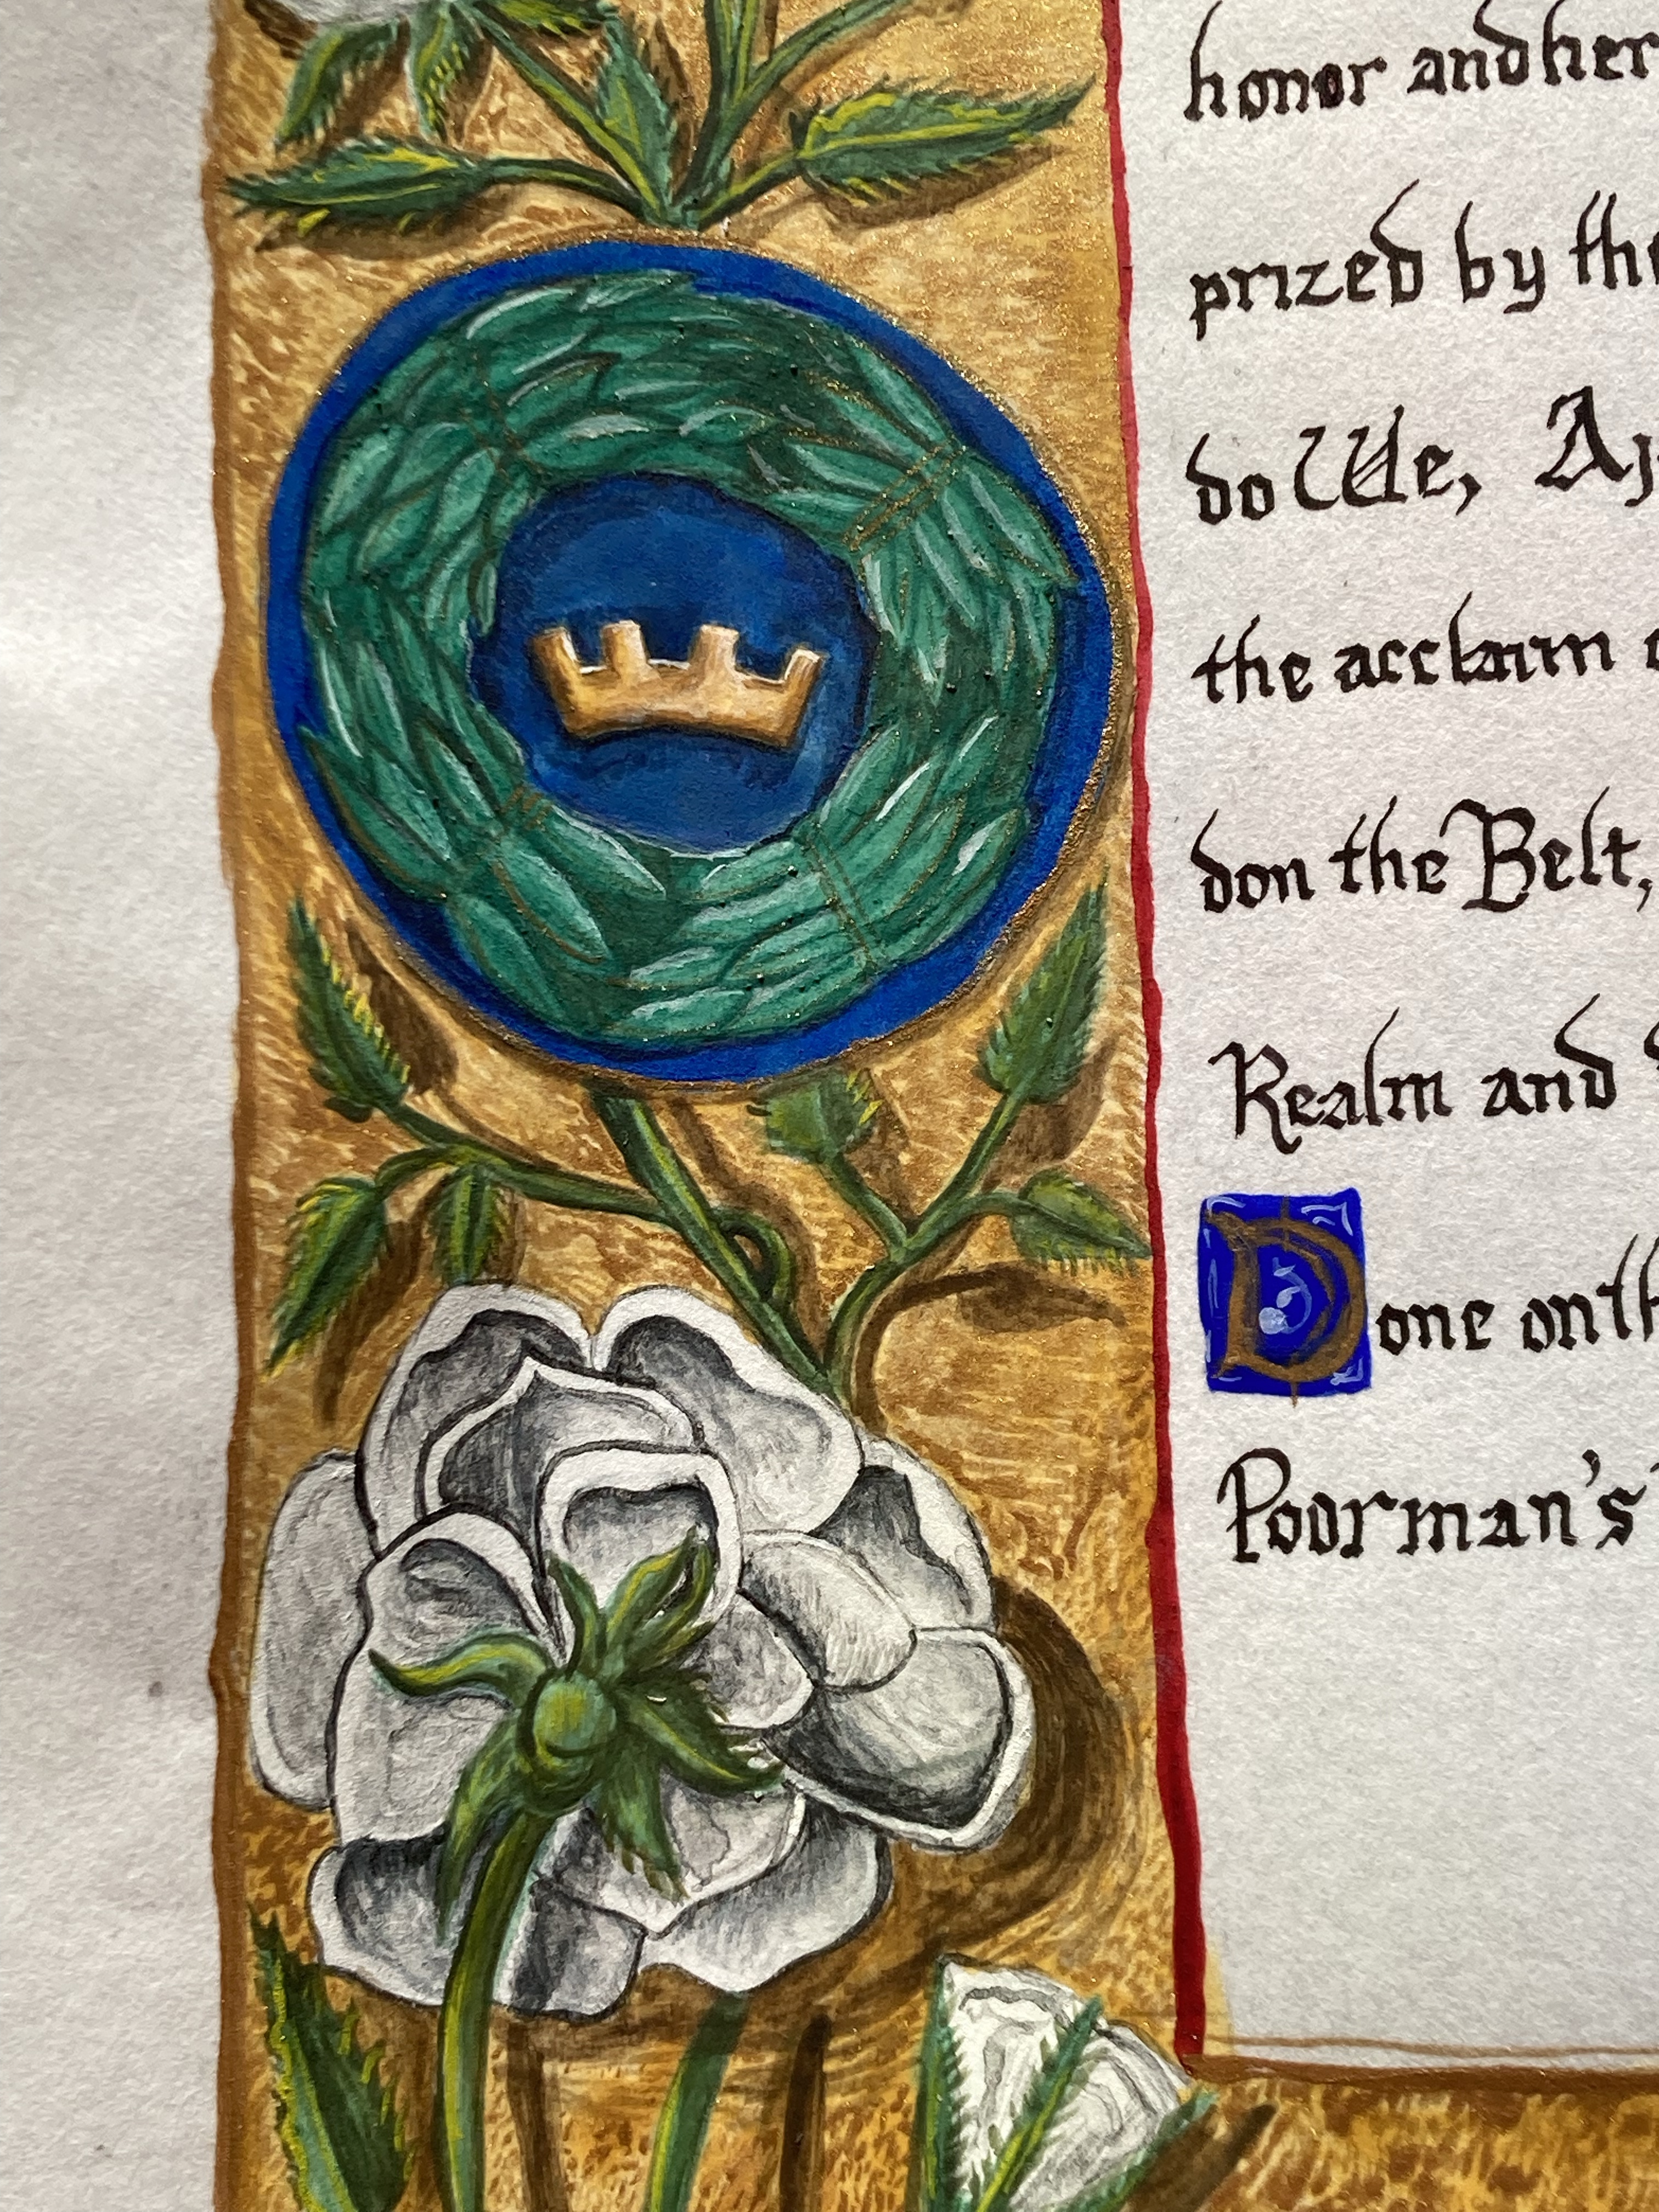 honor and her
prized by the
do We,
the acclaim
don the Belt,
Realm and
Done on th
Poorman's